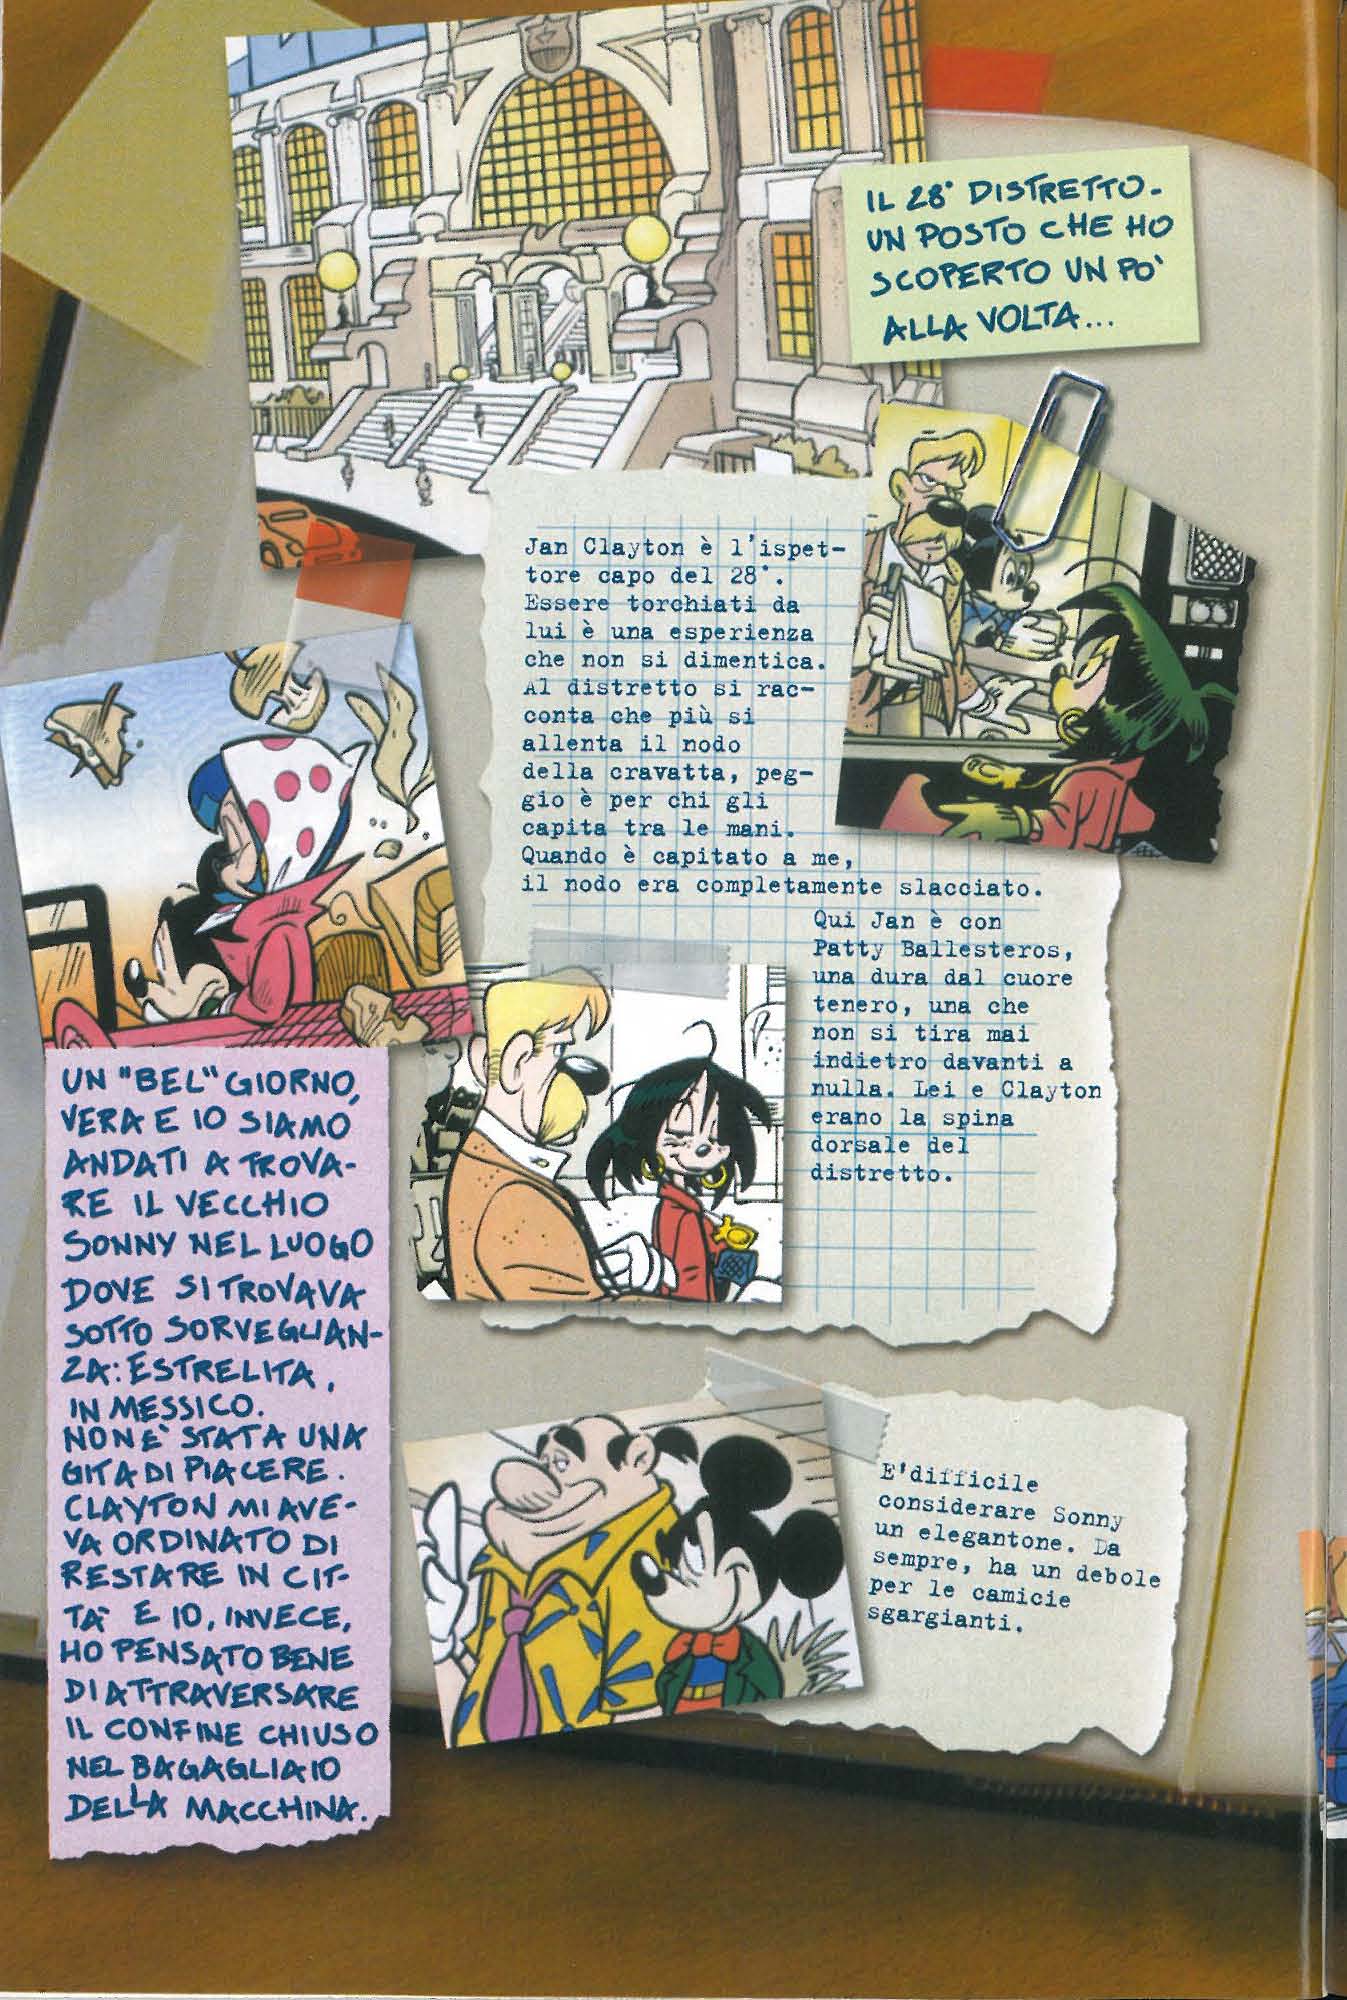 IL 28° DISTRETTO.
UN POSTO CHE HO
SCOPERTO UN PO'
ALLA VOLTA...
Jan Clayton è l'ispet-
tore capo del 28°.
Essere torchiati da
lui è una esperienza
che non si dimentica.
Al distretto si rac-
conta che più si
allenta il nodo
della cravatta, peg-
gio è per chi gli
capita tra le mani.
Quando è capitato a me,
il nodo era completamente slacciato.
Qui Jan è con
Patty Ballesteros,
una dura dal cuore
tenero, una che
non si tira mai
indietro davanti a
nulla. Lei e Clayton
erano la spina
dorsale del
distretto.
UN "BEL" GIORNO,
VERA E IO SIAMO
ANDATI A TROVA-
RE IL VECCHIO
SONNY NEL LUOGO
DOVE SI TROVAVA
SOTTO SORVEGLIAN-
ZA: ESTRELITA,
IN MESSICO.
NON È STATA UNA
GITA DI PIACERE.
CLAYTON MI AVE-
VA ORDINATO DI
RESTARE IN CIT-
TÀ E IO, INVECE,
HO PENSATO BENE
DI ATTRAVERSARE
IL CONFINE CHIUSO
NEL BAGAGLIAIO
DELLA MACCHINA.
E'difficile
considerare Sonny
un elegantone. Da
sempre, ha un debole
per le camicie
sgargianti.